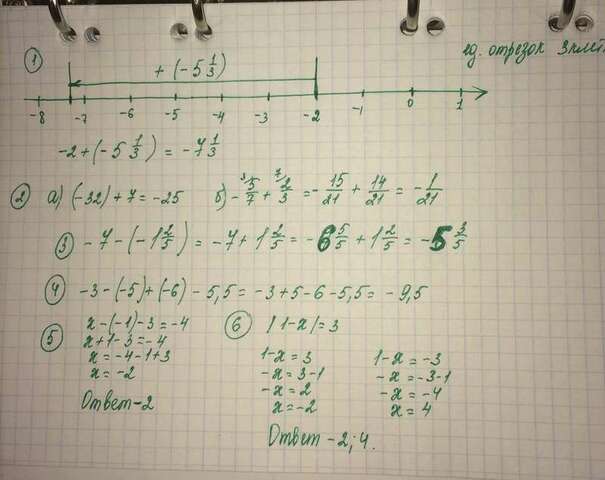 ед. отрезок 3 клет
① + (-5 1/3)
-8 -7 -6 -5 -4 -3 -2 -1 0 1
-2+(-5 1/3) = -7 1/3
② а) (-32)+7=-25 б) - 5/7 + 2/3 = - 15/21 + 14/21 = - 1/21
③ -7-(-1 2/5) = -7+1 2/5 = -6 5/5 + 1 2/5 = -5 3/5
④ -3-(-5)+(-6)-5,5=-3+5-6-5,5=-9,5
⑤ x-(-1)-3=-4
x+1-3=-4
x=-4-1+3
x=-2
Ответ-2
⑥ |1-x|=3
1-x=3 1-x=-3
-x=3-1 -x=-3-1
-x=2 -x=-4
x=-2 x=4
Ответ -2; 4.